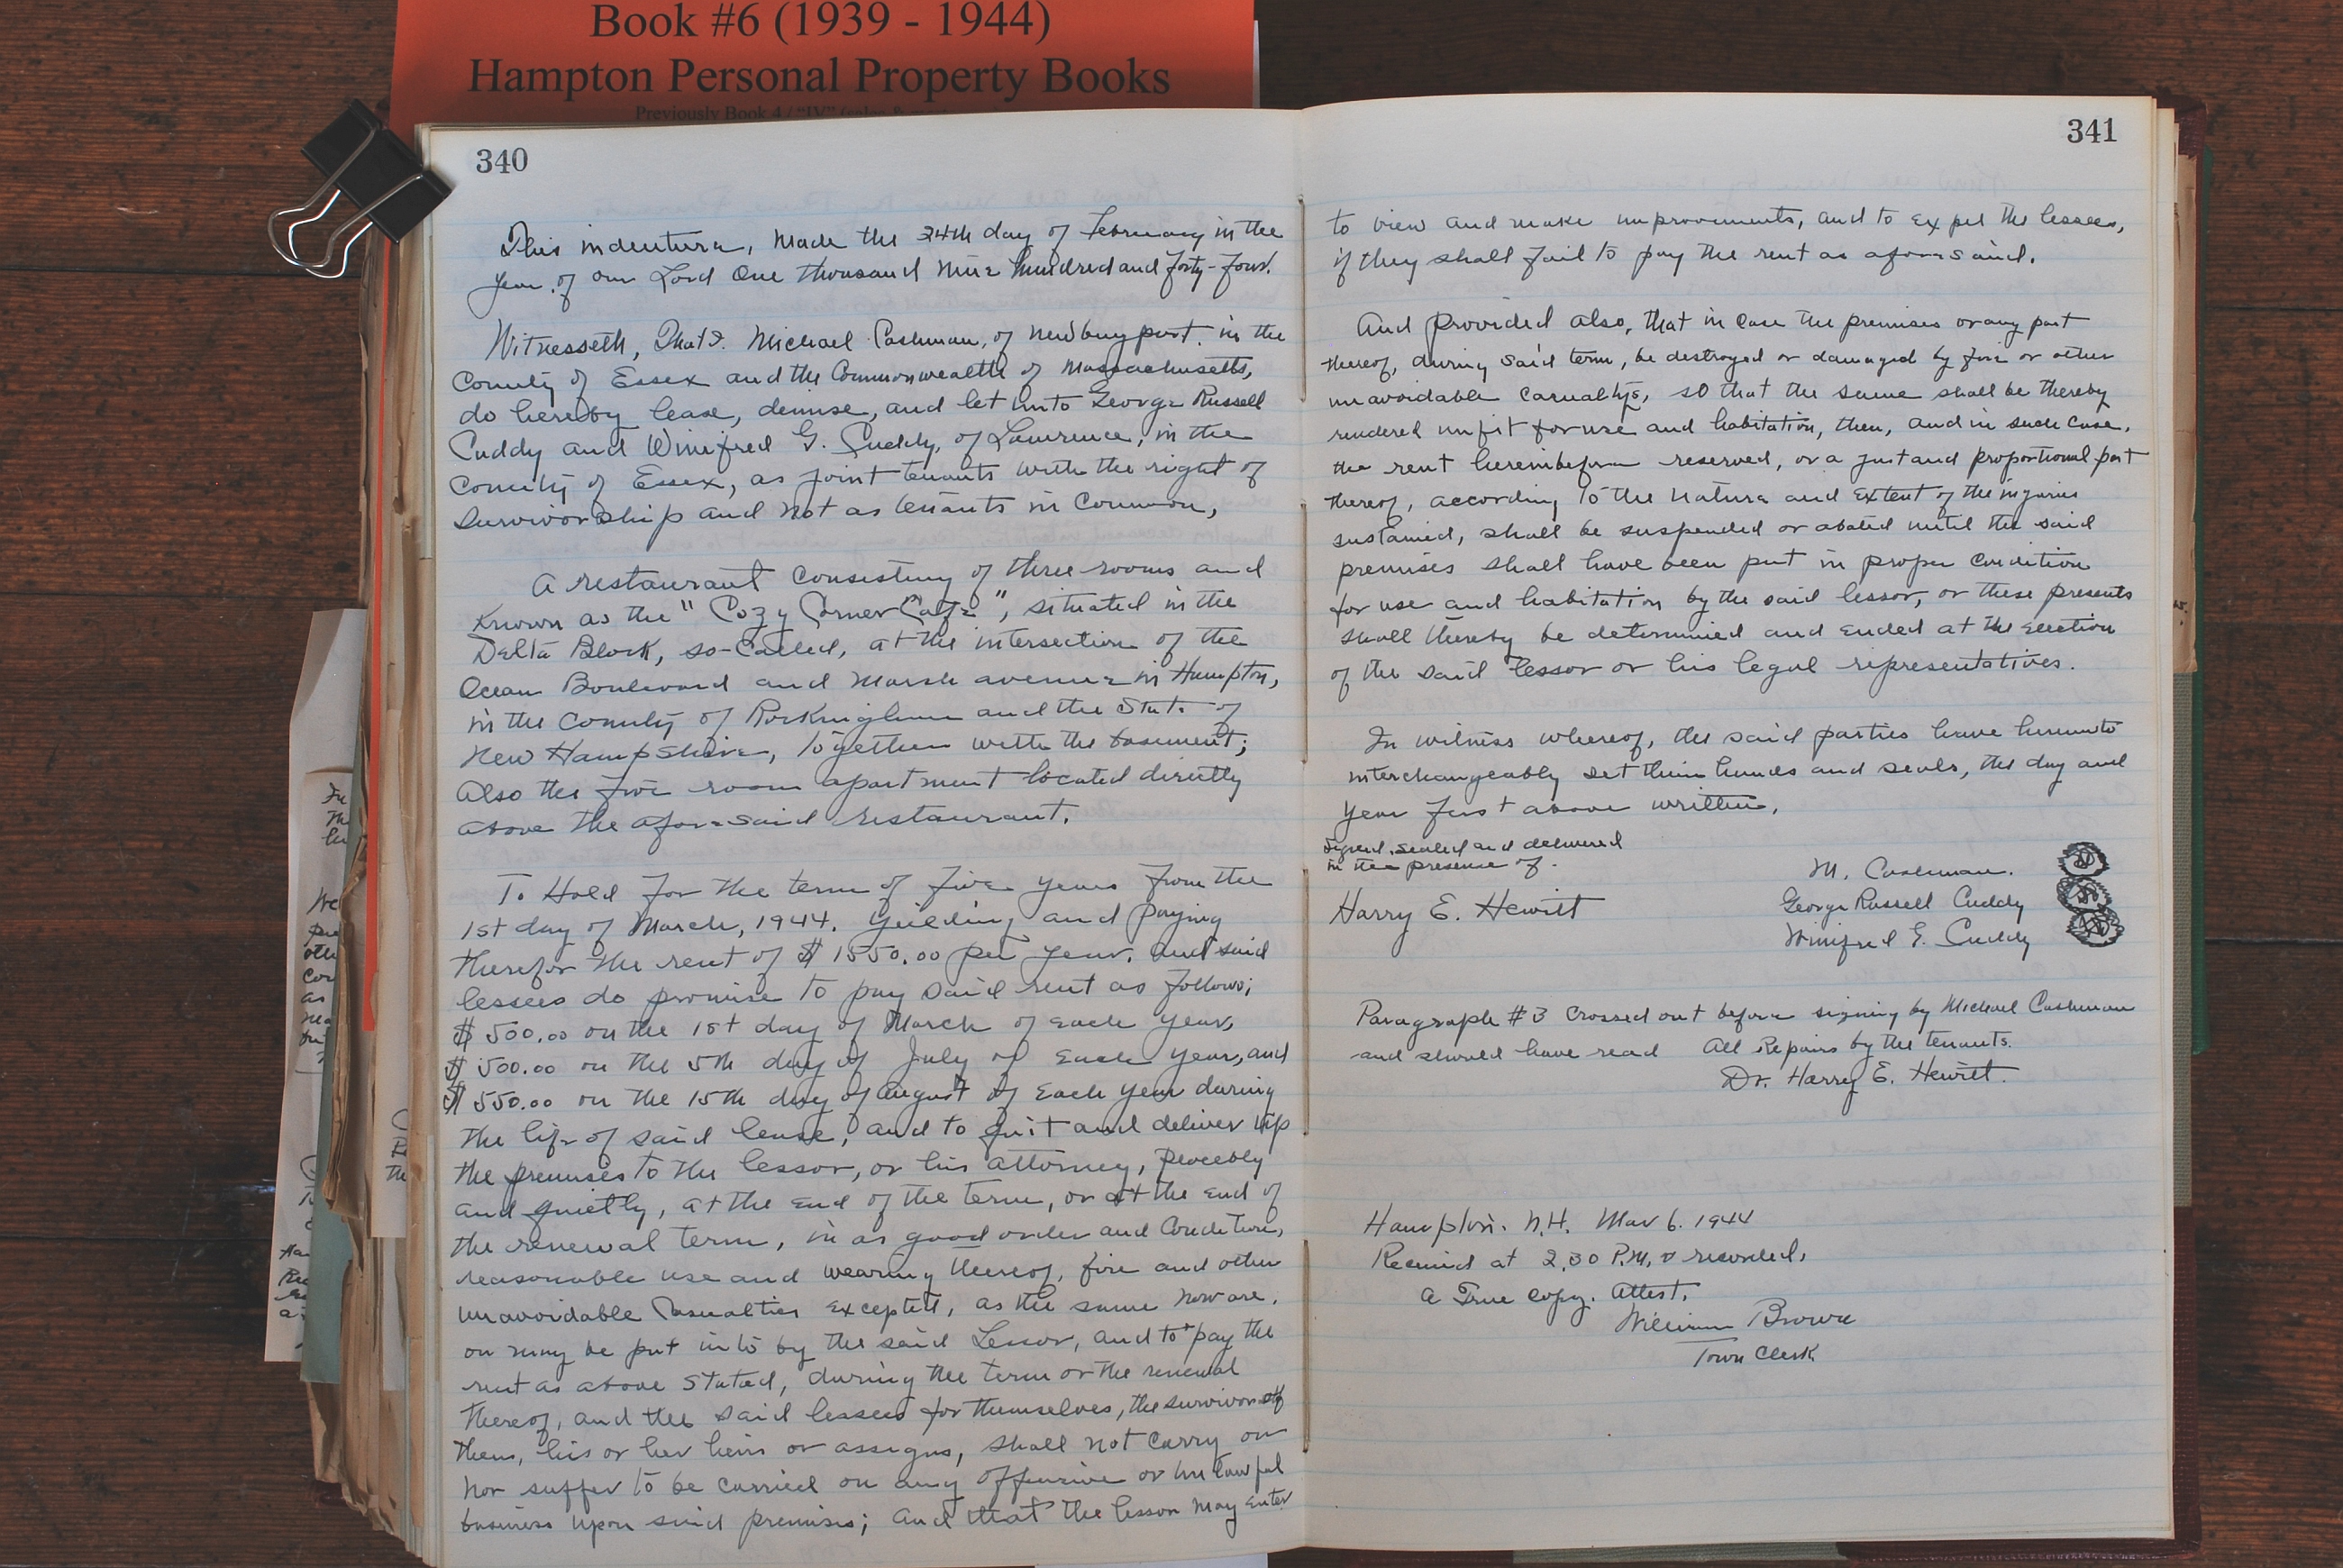 Book #6 (1939 - 1944)
Hampton Personal Property Books
Previously Book 4 / "IV"
340
This indenture, made the 24th day of February in the
year of our Lord One thousand nine hundred and forty-four.
Witnesseth, That I. Michael Cashman, of Newburyport, in the
County of Essex and the Commonwealth of Massachusetts,
do hereby lease, demise, and let unto George Russell
Cuddy and Winifred G. Cuddy, of Lawrence, in the
County of Essex, as joint tenants with the right of
survivorship and not as tenants in common,
A restaurant consisting of three rooms and
known as the "Cozy Corner Cafe", situated in the
Delta Block, so-called, at the intersection of the
Ocean Boulevard and Marsh avenue in Hampton,
in the County of Rockingham and the State of
New Hampshire, together with the basement;
Also the five room apartment located directly
above the aforesaid restaurant.
To Hold for the term of five years from the
1st day of March, 1944. Yielding and paying
therefor the rent of $1550.00 per year. and said
lessees do promise to pay said rent as follows;
$500.00 on the 1st day of March of each year,
$500.00 on the 5th day of July of each year, and
$550.00 on the 15th day of August of each year during
the life of said lease, and to quit and deliver up
the premises to the lessor, or his attorney, peacebly
and quietly, at the end of the term, or at the end of
the renewal term, in as good order and condition,
reasonable use and wearing thereof, fire and other
unavoidable casualties excepted, as the same now are,
or may be put into by the said Lessor, and to pay the
rent as above stated, during the term or the renewal
thereof, and the said lessees for themselves, the survivor of
them, his or her heirs or assigns, shall not carry on
nor suffer to be carried on any offensive or unlawful
business upon said premises; and that the lessor may enter
341
to view and make improvements, and to expel the lessees,
if they shall fail to pay the rent as aforesaid.
And provided also, that in case the premises or any part
thereof, during said term, be destroyed or damaged by fire or other
unavoidable casualtys, so that the same shall be thereby
rendered unfit for use and habitation, then, and in such case,
the rent hereinbefore reserved, or a just and proportional part
thereof, according to the nature and extent of the injuries
sustained, shall be suspended or abated until the said
premises shall have been put in proper condition
for use and habitation by the said lessor, or these presents
shall thereby be determined and ended at the election
of the said lessor or his legal representatives.
In witness whereof, the said parties have hereunto
interchangeably set their hands and seals, the day and
year first above written,
Signed, sealed and delivered
in the presence of.
M. Cashman.
Harry E. Hewitt
George Russell Cuddy
Winifred G. Cuddy
Paragraph #3 crossed out before signing by Michael Cashman
and should have read All Repairs by the tenants.
Dr. Harry E. Hewitt.
Hampton. N.H. Mar 6. 1944
Received at 2.30 P.M. & recorded,
A True copy. Attest.
William Brown
Town Clerk